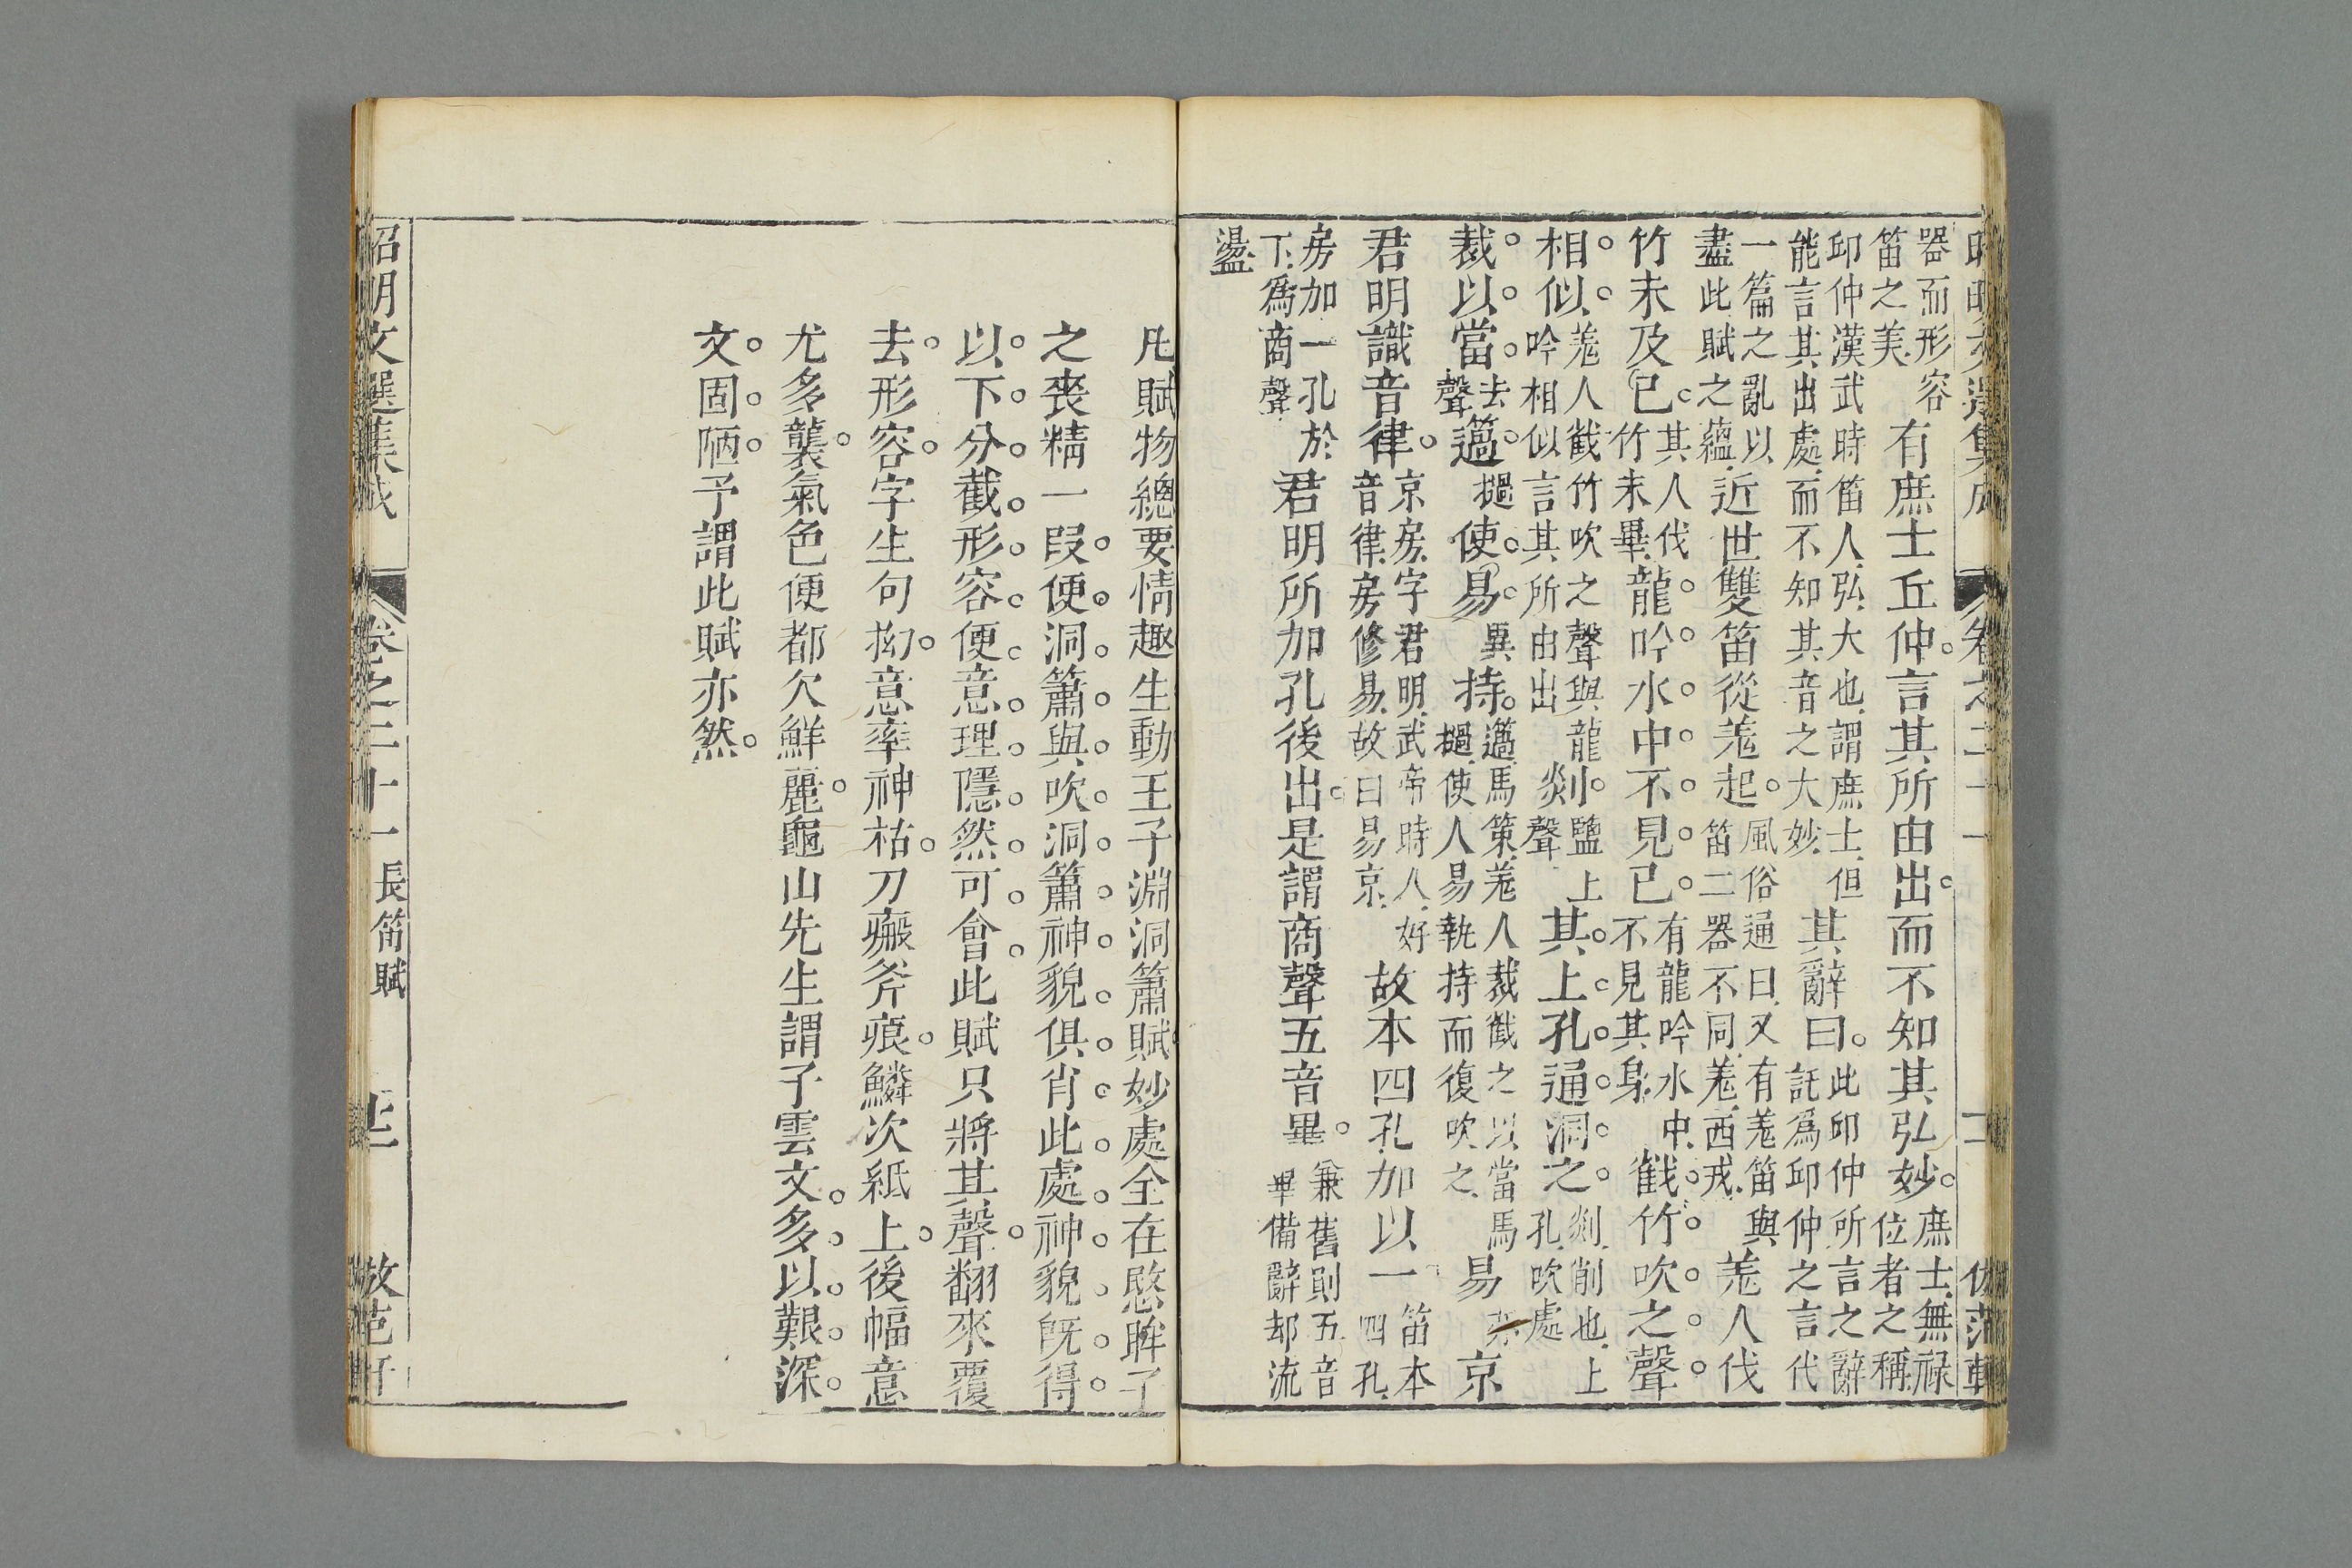 器而形容
笛之美
有庶士丘仲言其所由出而不知其弘妙
庶士無祿
位者之稱
邱仲漢武時笛人弘大也謂庶士但
能言其出處而不知其音之大妙
其辭曰
此邱仲所言之辭
託爲邱仲之言代
一篇之亂以
盡此賦之蘊
近世雙笛從羗起
風俗通曰又有羗笛與
笛二器不同羗西戎
羗人伐
竹未及已
其人伐
竹未畢
龍吟水中不見已
有龍吟水中
不見其身
截竹吹之聲
相似
羗人截竹吹之聲與龍
吟相似言其所由出
剡
鹽上
聲
其上孔通洞之
剡削也上
孔吹處
裁以當
去
聲
簻
檛
使易
異
持
簻馬策羗人裁截之以當馬
檛使人易執持而復吹之
易
京
君明識音律
京房字君明武帝時人好
音律房修易故曰易京
故本四孔加以一
笛本
四孔
房加一孔於
下爲商聲
君明所加孔後出是謂商聲五音畢
兼舊則五音
畢備辭却流
盪
凡賦物總要情趣生動王子淵洞簫賦妙處全在愍眸子
之喪精一段便洞簫與吹洞簫神貌俱肖此處神貌旣得
以下分截形容便意理隱然可會此賦只將其聲翻來覆
去形容字生句拗意率神祜刀瘢斧痕鱗次紙上後幅意
尤多襲氣色便都欠鮮麗龜山先生謂子雲文多以艱深
文固陋予謂此賦亦然
昭明文選集成
卷之二十一
長笛賦